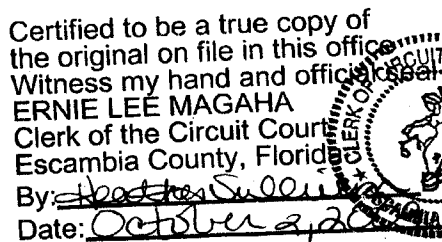 Certified to be a true copy of
the original on file in this office
Witness my hand and official seal
ERNIE LEE MAGAHA
Clerk of the Circuit Court
Escambia County, Florida
By:
Date: October 2, 20
CLERK OF CIRCUIT
ESCAMBIA